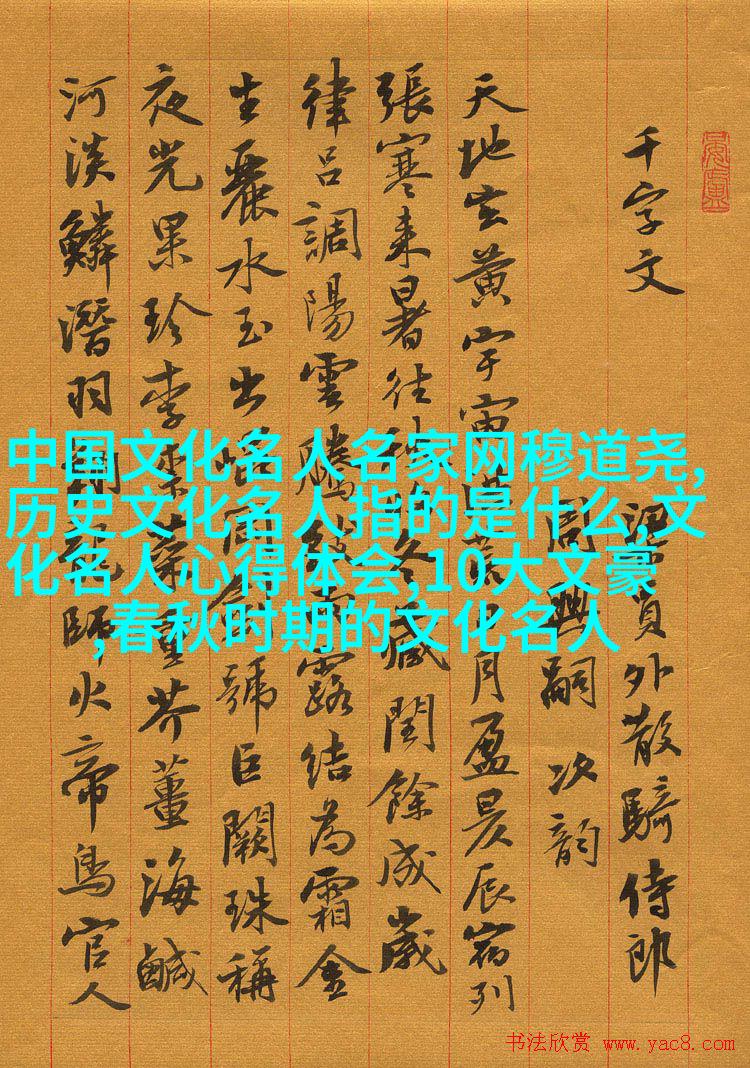 千字文
梁員外散騎侍郎
周興嗣次韵
天地玄黃宇宙洪荒日月盈昃辰宿列
張寒来暑往秋收冬藏閏餘成歲
律呂調陽雲騰致雨露結為霜金
生麗水玉出崑岡劍號巨闕珠稱
夜光果珍李柰菜重芥薑海鹹
河淡鱗潛羽翔龍師火帝鳥官人
中国文化名人名家网穆道尧,
历史文化名人指的是什么,文
化名人心得体会,10大文豪
,春秋时期的文化名人
书法欣赏 www.yac8.com